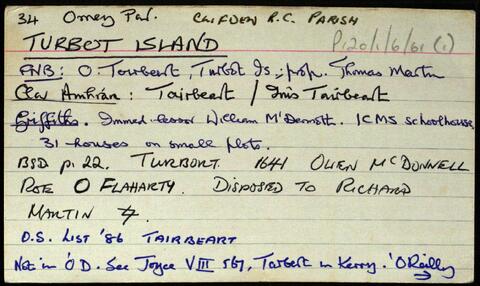 34 Omey Par. CLIFDEN R.C. PARISH
P120/1/6/61 (1)
TURBOT ISLAND
FNB: O. Towbeart, Turbot Is, prop. Thomas Martin
Clár Amhrán: Tairbeart / Inis Tairbeart
Griffiths. Immed. lessor William McDermott. ICMS schoolhouse
31 houses on small plots.
BSD p. 22. TURBORT. 1641 OWEN MCDONNELL
ROE O FLAHARTY. DISPOSED TO RICHARD
MARTIN
O.S. LIST '86 TAIRBEART
Not in O'D. See Joyce VIII 567, Tarbert in Kerry. 'O'Reilly